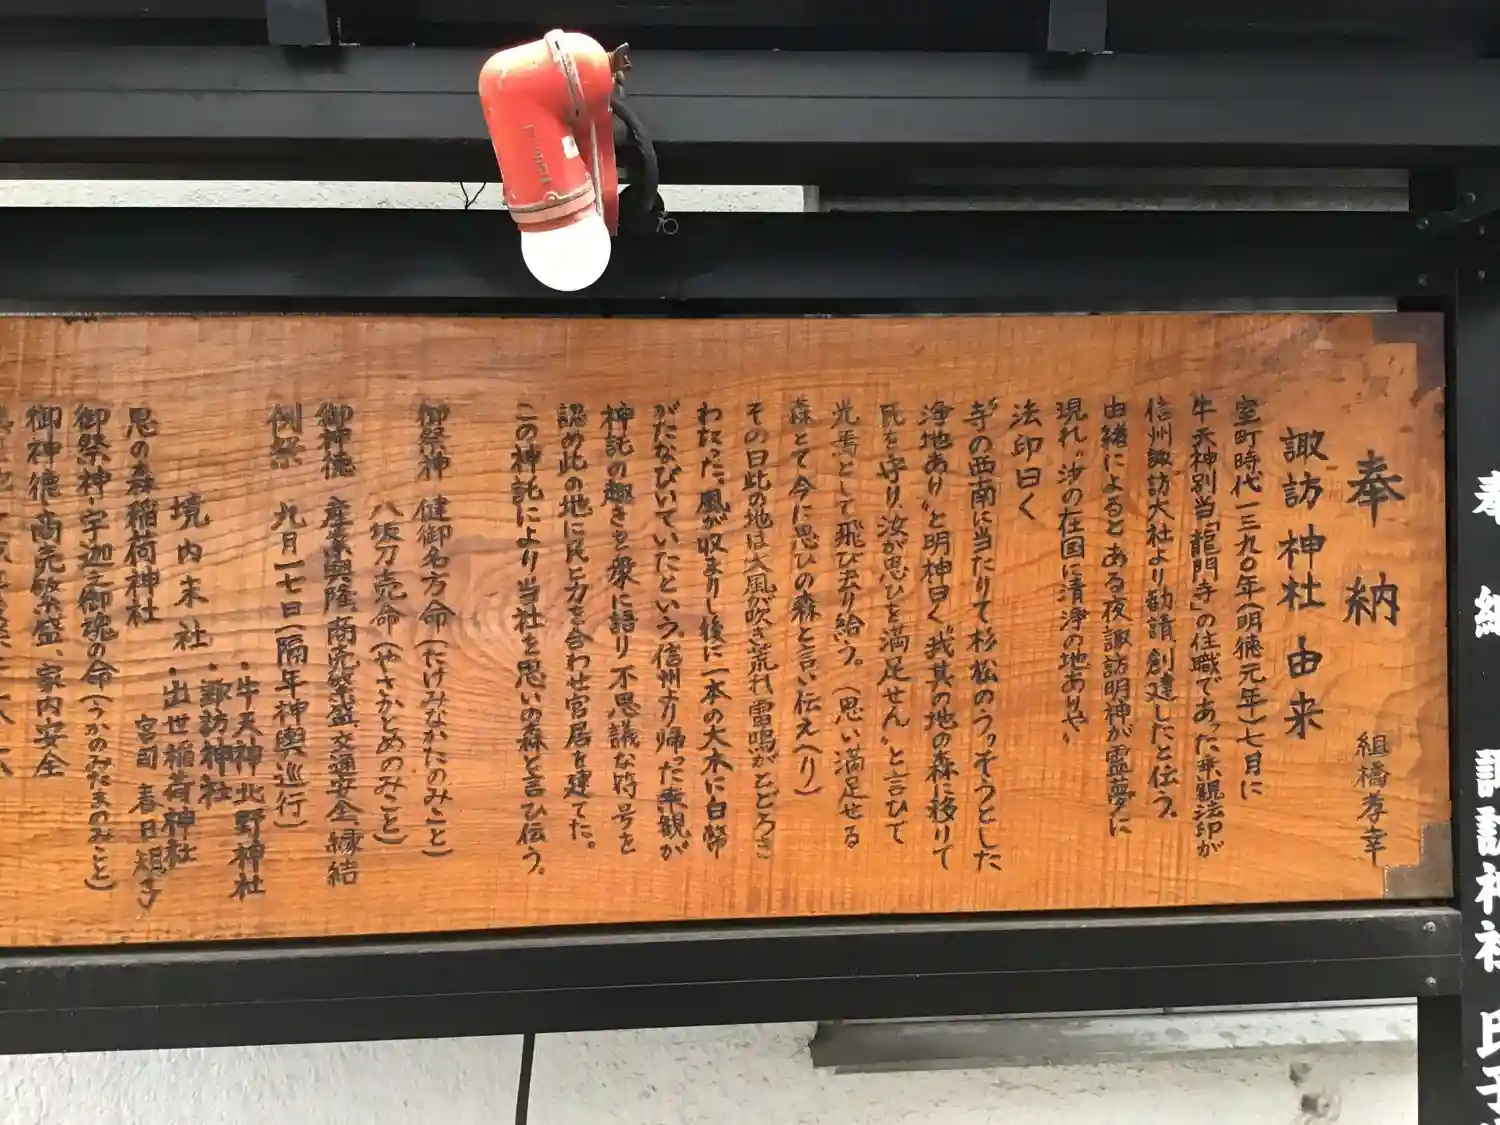 奉納
組橋孝幸
諏訪神社由来
室町時代一三九〇年(明徳元年)七月に
牛天神別当「龍門寺」の住職であった乗観法印が
信州諏訪大社より勧請、創建したと伝う。
由緒によると ある夜 諏訪明神が霊夢に
現れ〝汝の在国に清浄の地ありや〟
法印曰く
〝寺の西南に当たりて杉松のうっそうとした
浄地あり〟と明神曰く〝我其の地の森に移りて
氏を守り、汝が思ひを満足せん〟と言ひて
光焉として飛び去り給う。(思い満足せる
森とて今に思ひの森と言い伝えへり)
その日此の地は大風が吹き荒れ雷鳴がとどろき
わたった。風が収まりし後に一本の大木に白幣
がたなびいていたという。信州より帰った乗観が
神託の趣きを衆に語り 不思議な符号を
認め此の地に民と力を合わせ宮居を建てた。
この神託により当社を思いの森と言ひ伝う。
御祭神 健御名方命(たけみなかたのみこと)
八坂刀売命(やさかとめのみこと)
御神徳 産業興隆、商売繁盛、交通安全、縁結
例祭 九月一七日(隔年神輿巡行)
境内末社
・牛天神北野神社
・諏訪神社
・出世稲荷神社
宮司 春日
思の森稲荷神社
御祭神・宇迦之御魂の命(うかのみたまのみこと)
御神徳・商売繁盛、家内安全
奉納
諏訪神社
氏子